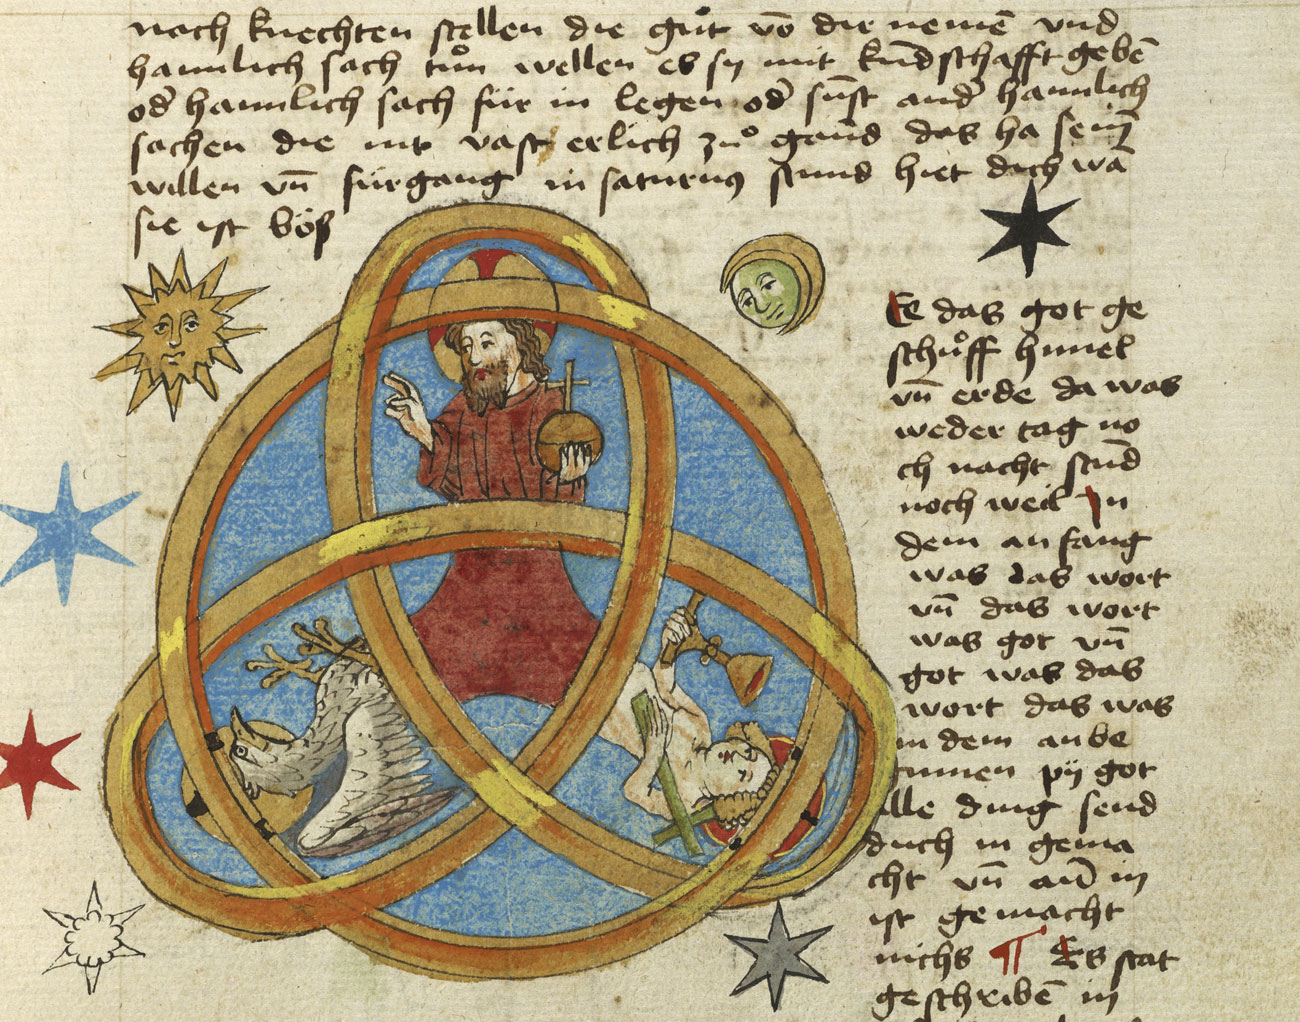 nach knechten stellen die gůt vō dir nemē vnd
hainlich sach tůn wellen es sy mit kūdschafft gebē
od̄ hainlich sach für in legen od̄ sūst and̄ hainlich
sachen die nit vast erlich zů gand das ha seinē
willen vn̄ fürgang in saturnꝯ stund hiet dich wā
sie ist bös
Ee das got ge
schůff himel
vn̄ erde da was
weder tag no
ch nacht stūd
noch weil In
dem anfang
was das wort
vn̄ das wort
was got vn̄
got was das
wort das was
in dem anbe
ginnen pÿ got
alle ding send
duch in gema
cht vn̄ an̄ in
ist gemacht
nichs ¶ Es stat
geschribē in